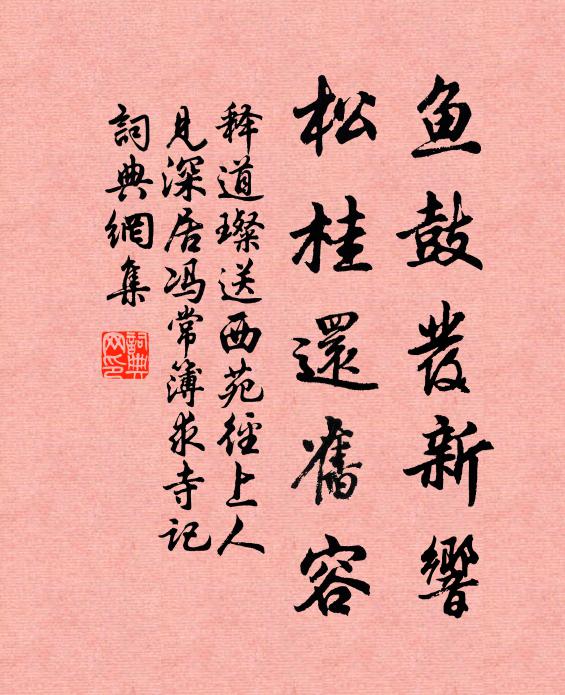 鱼鼓发新響
松桂還舊容
释道璨送西苑徑上人
見深居冯常簿求寺記
詞典網集
詞典网印